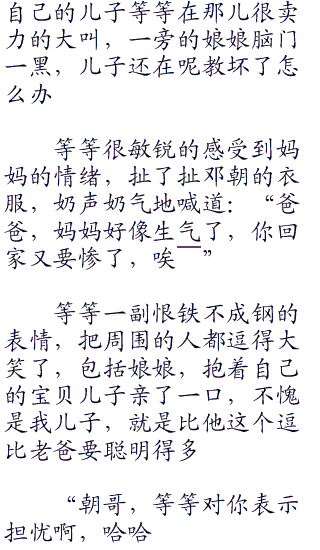 自己的儿子等等在那儿很卖
力的大叫，一旁的娘娘脑门
一黑，儿子还在呢教坏了怎
么办
等等很敏锐的感受到妈
妈的情绪，扯了扯邓朝的衣
服，奶声奶气地喊道：“爸
爸，妈妈好像生气了，你回
家又要惨了，唉”
等等一副恨铁不成钢的
表情，把周围的人都逗得大
笑了，包括娘娘，抱着自己
的宝贝儿子亲了一口，不愧
是我儿子，就是比他这个逗
比老爸要聪明得多
“朝哥，等等对你表示
担忧啊，哈哈